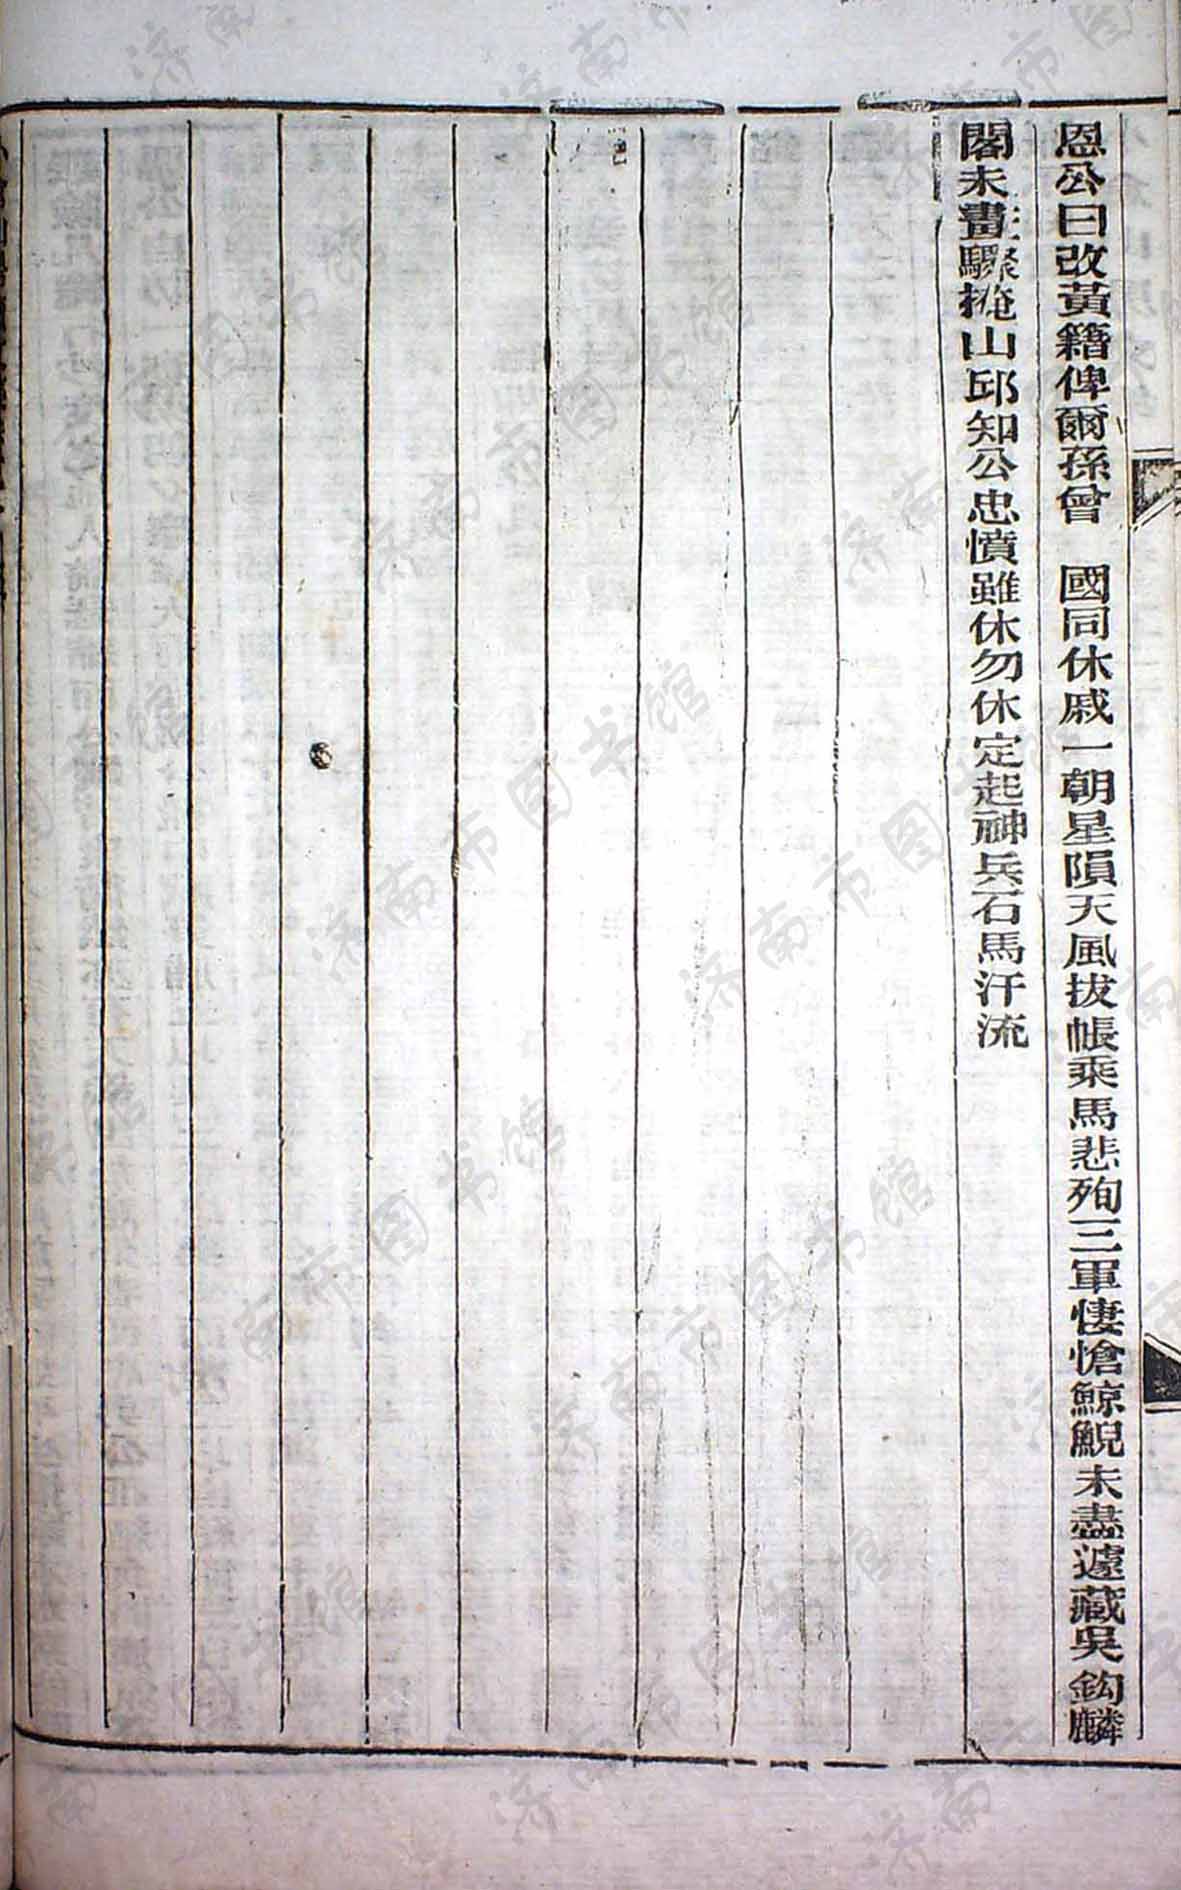 恩公曰改黃籍俾爾孫曾　國同休戚一朝星隕天風拔帳乘馬悲殉三軍悽愴鯨鯢未盡遽藏吳鈎麟
閣未畫驟掩山邱知公忠憤雖休勿休定起神兵石馬汗流
济南市图书馆